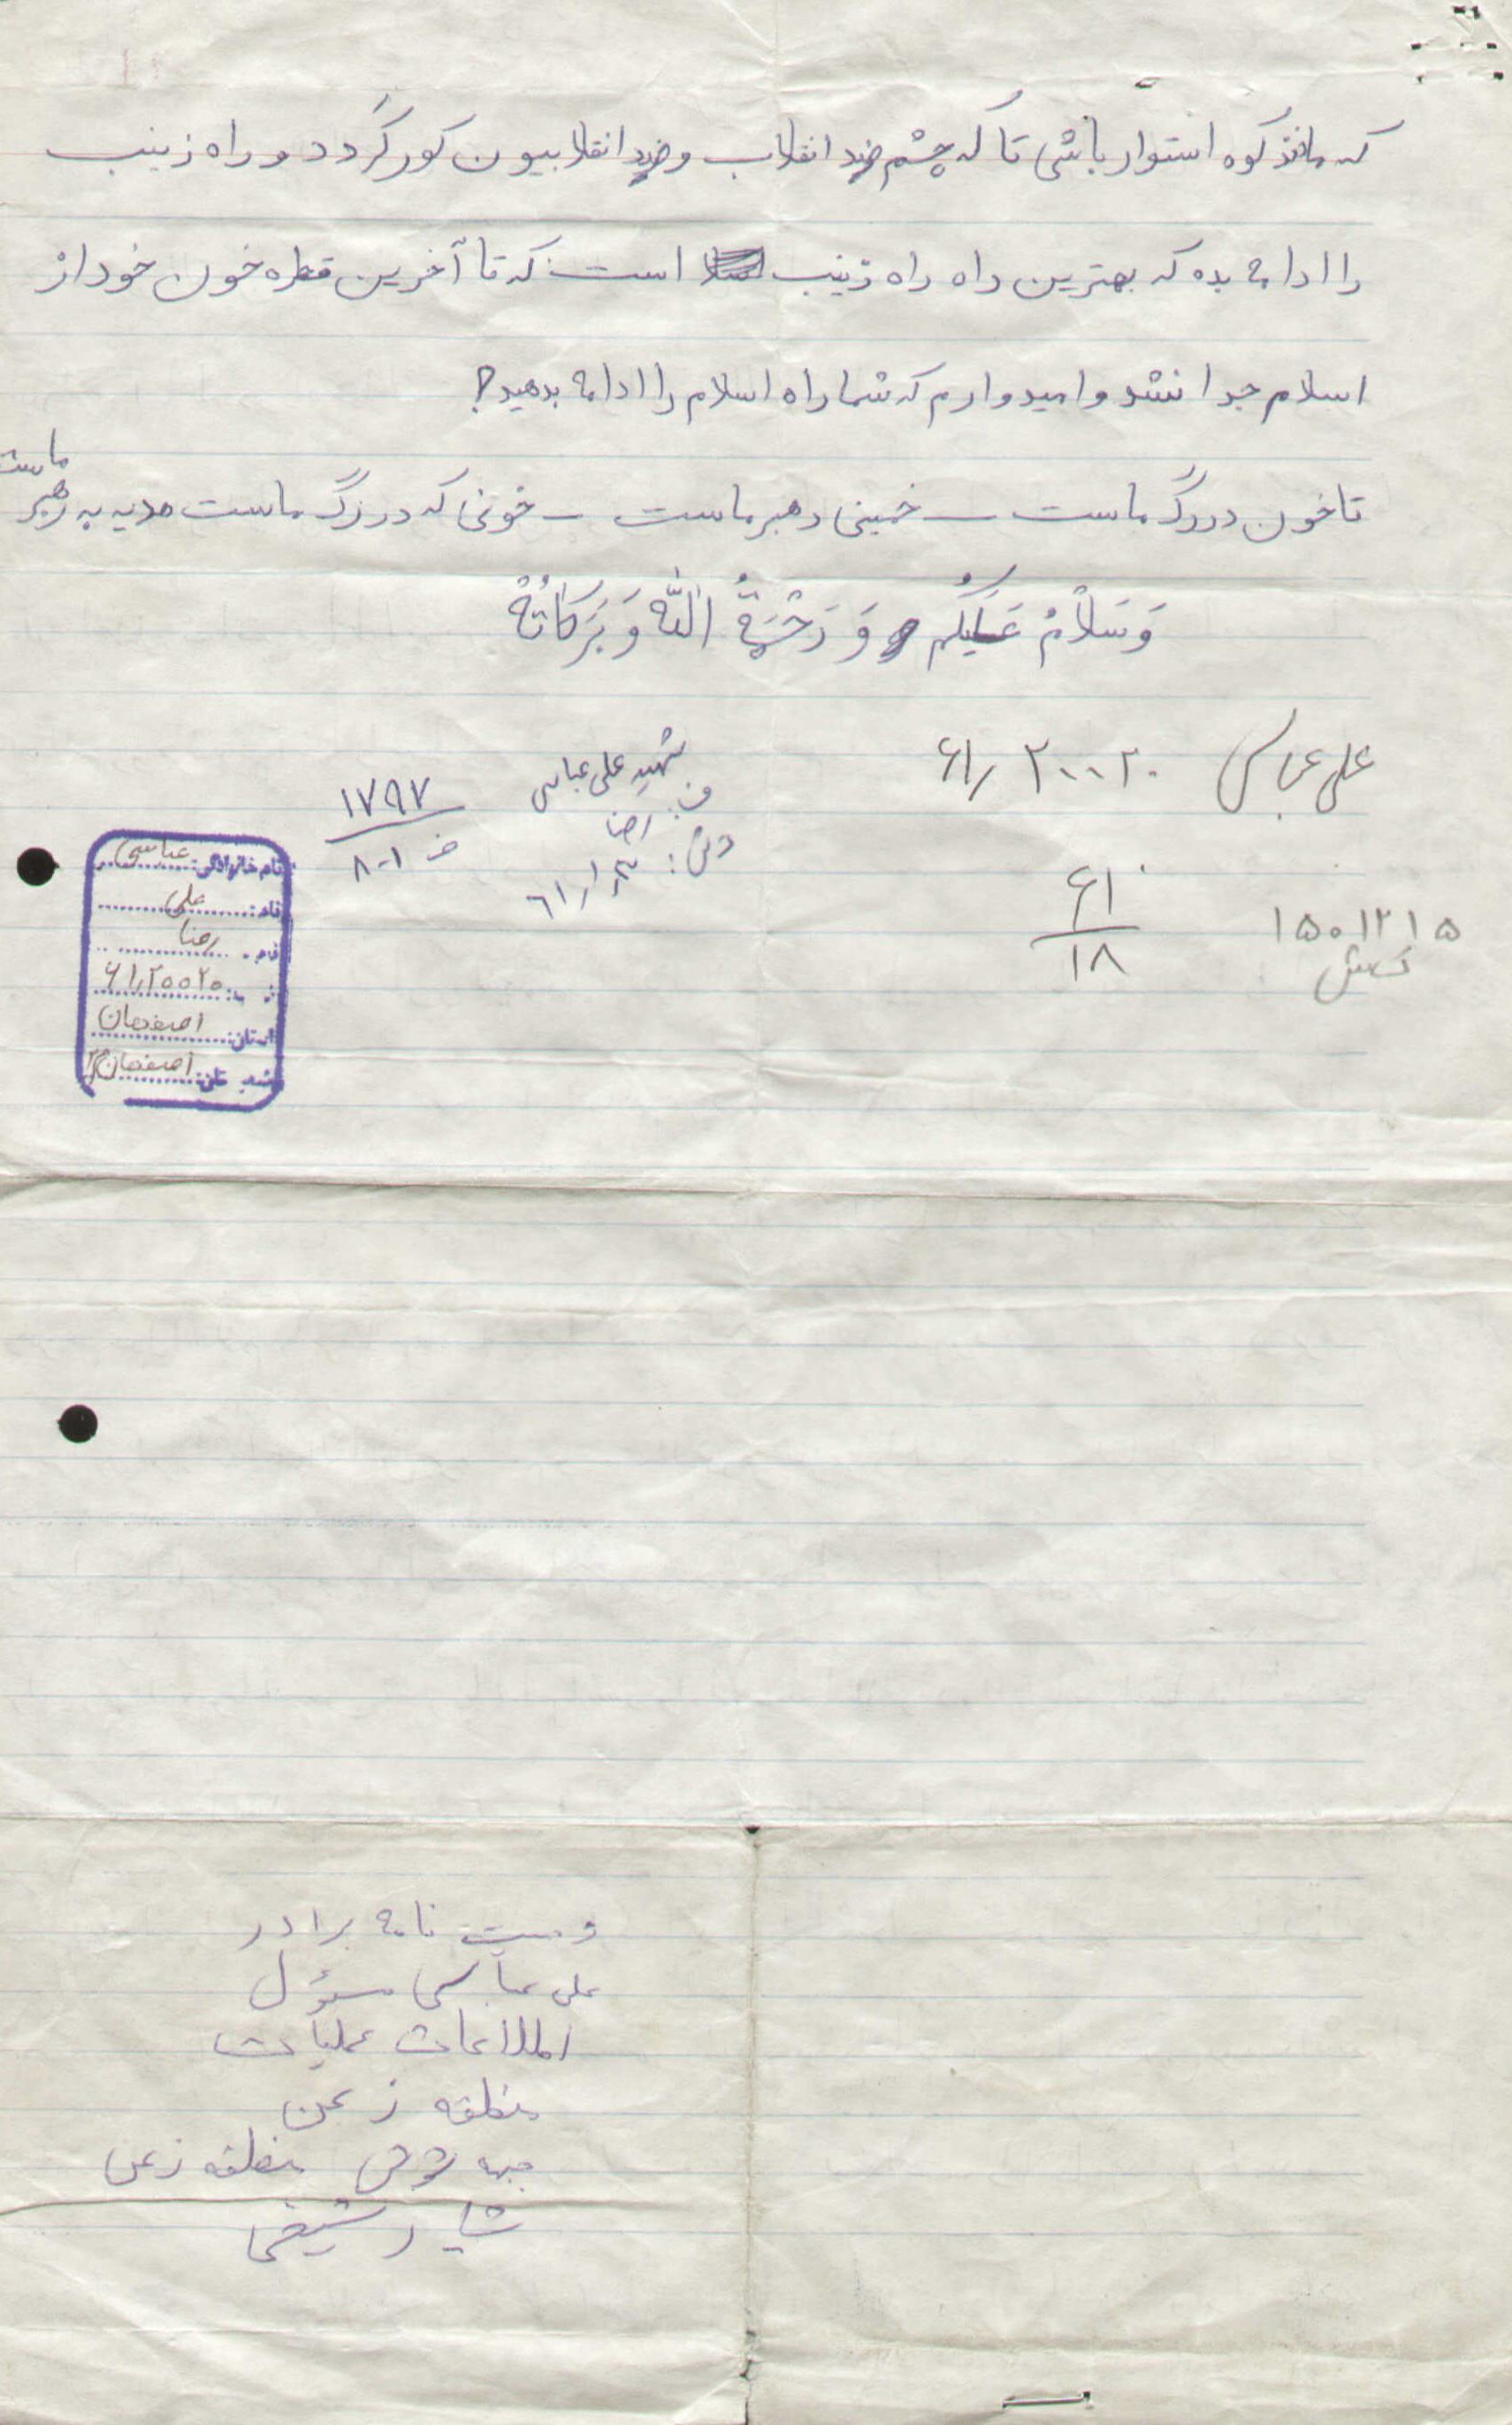 که مانند کوه استوار باشی تا که چشم ضد انقلاب و ضد انقلابیون کور گردد و راه زینب
را ادامه بده که بهترین راه راه زینب است که تا آخرین قطره خون خود از
اسلام جدا نشد و امیدوارم که شما راه اسلام را ادامه بدهید؟
تا خون در رگ ماست – خمینی رهبر ماست – خونی که در رگ ماست هدیه به رهبر ماست
وَسَلامُ عَلَیکُم وَ رَحْمَةُ اللّه وَ بَرَکاتُهُ
علی عباسی ۶۱٫۲۰۰۲۰
شهید علی عباسی
ف: رضا
۱۷۹۷
۸۰۱
۶۱
۱۸
۱۵۰۱۲۱۵
نام خانوادگی: عباسی
نام: علی
نام: رضا
۶۱٫۲۰۰۲۰
استان: اصفهان
اصفهان
وصیت نامه برادر
علی عباسی مسئول
اطلاعات عملیات
منطقه زعن
منطقه زعن